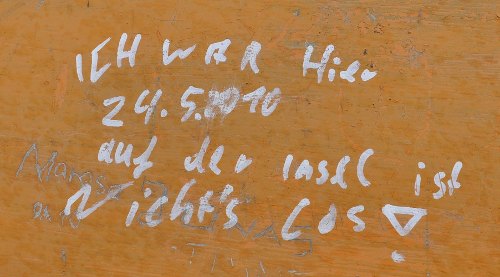 ICH WAR Hier
24.5.2010
auf der insel ist
Nicht's Los